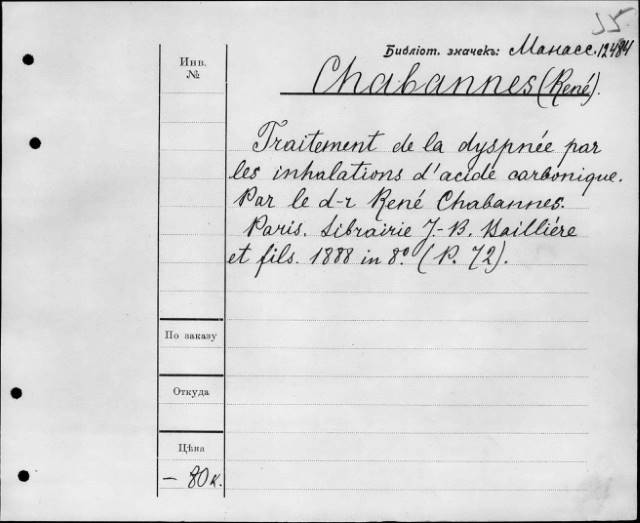 55.
Библіот. значекъ: Манасс. 12484
Инв.
№
Chabannes (René).
Traitement de la dyspnée par
les inhalations d'acide carbonique.
Par le d-r René Chabannes.
Paris. Librairie J.-B. Baillière
et fils. 1888 in 8º (P. 72).
По заказу
Откуда
Цѣна
— 80 к.